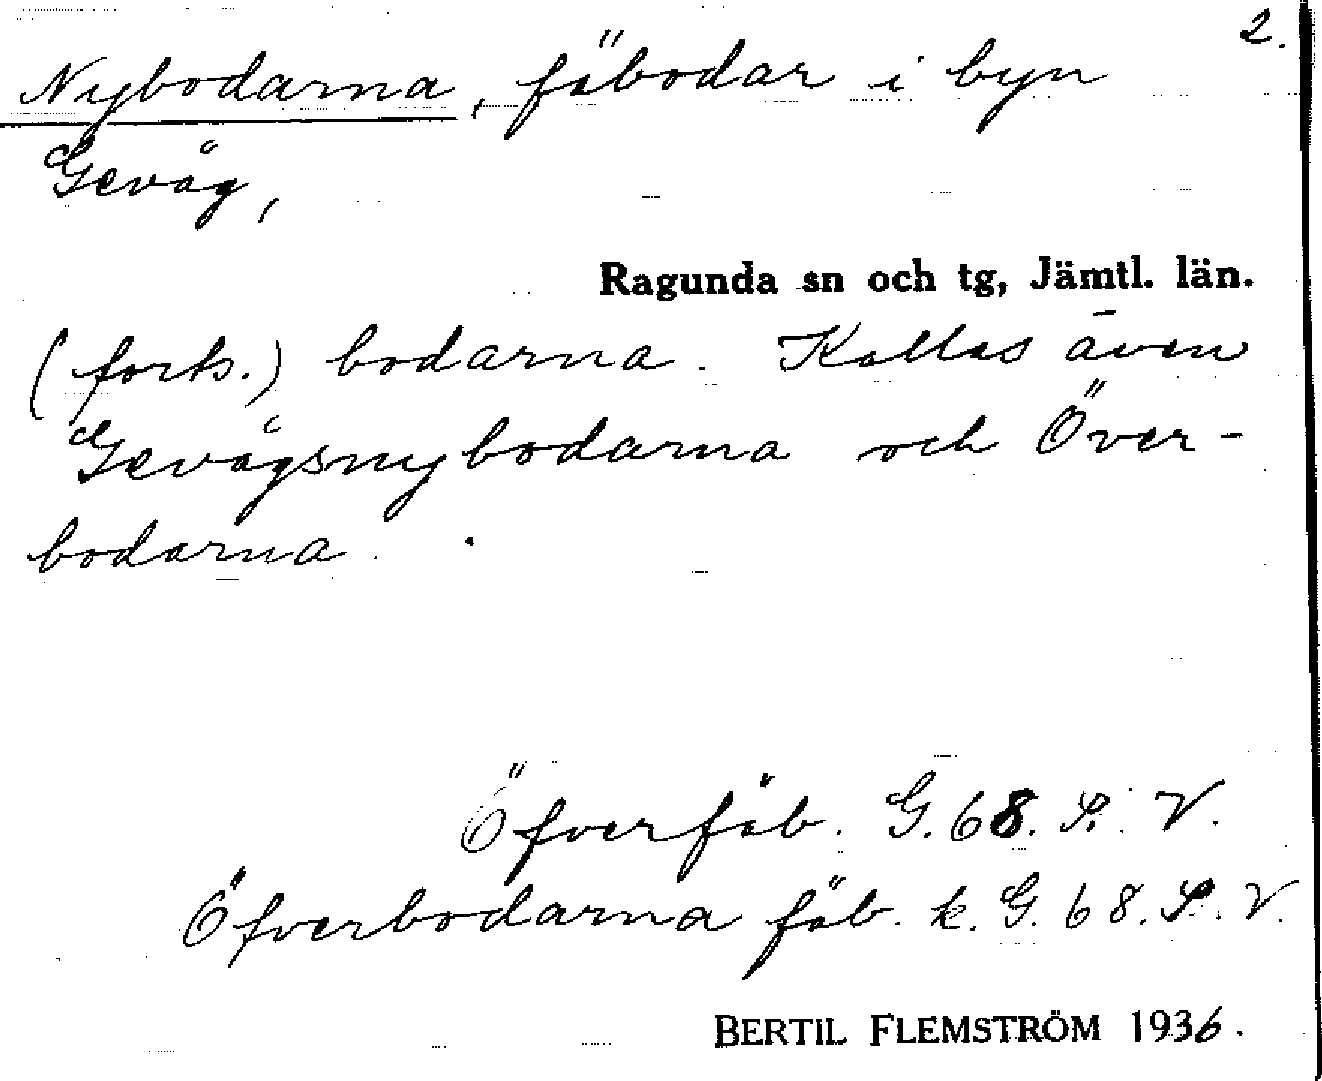 2.
Nybodarna, fäbodar i byn
Gevåg,
Ragunda sn och tg, Jämtl. län.
(forts.) bodarna. Kallas även
Gevågsnybodarna och Över-
bodarna.
Öfverfäb. G. 68. S. V.
Öfverbodarna fäb. k. G. 68. S. V.
BERTIL FLEMSTRÖM 1936.